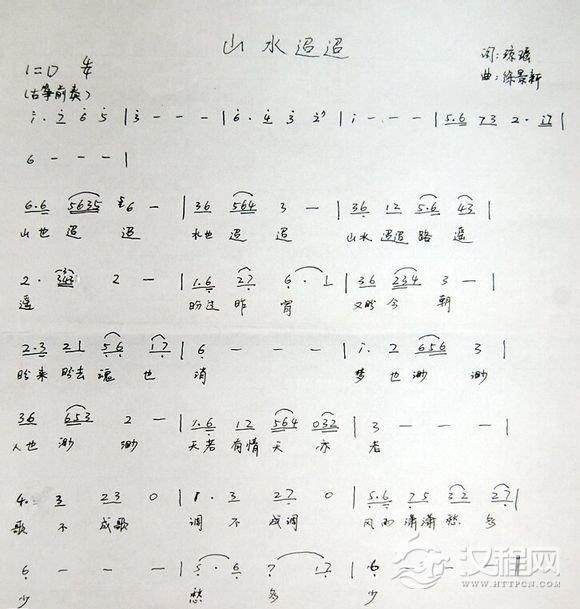 山水迢迢
1=D 4/4
词:琼瑶
曲:徐景新
(古筝前奏)
i. 2 6 5 | 3 - - - | 6. 4 3 2 | i - - - | 5.6 73 2. i7 |
6 - - - |
6.6 5635 6 - | 36 564 3 - | 36 12 5.6 43 |
山也迢迢 水也迢迢 山水迢迢路遥
2. 343 2 - | 1.6 27 6. 1 | 36 234 3 - |
遥 盼过昨宵 又盼今朝
2.3 21 56 17 | 6 - - - | i. 2 656 3 |
盼来盼去魂也消 梦也渺渺
36 653 2 - | 1.6 12 564 032 | 3 - - - |
人也渺渺 天若有情天亦老
4. 3 23 0 | 1. 3 27 0 | 5.6 75 32 27 |
歌不成歌 调不成调 风雨潇潇愁多
6 - - - | 5. 6 7 17 | 6 - - - ‖
少 愁多少
汉程网
WWW.HTTPCN.COM